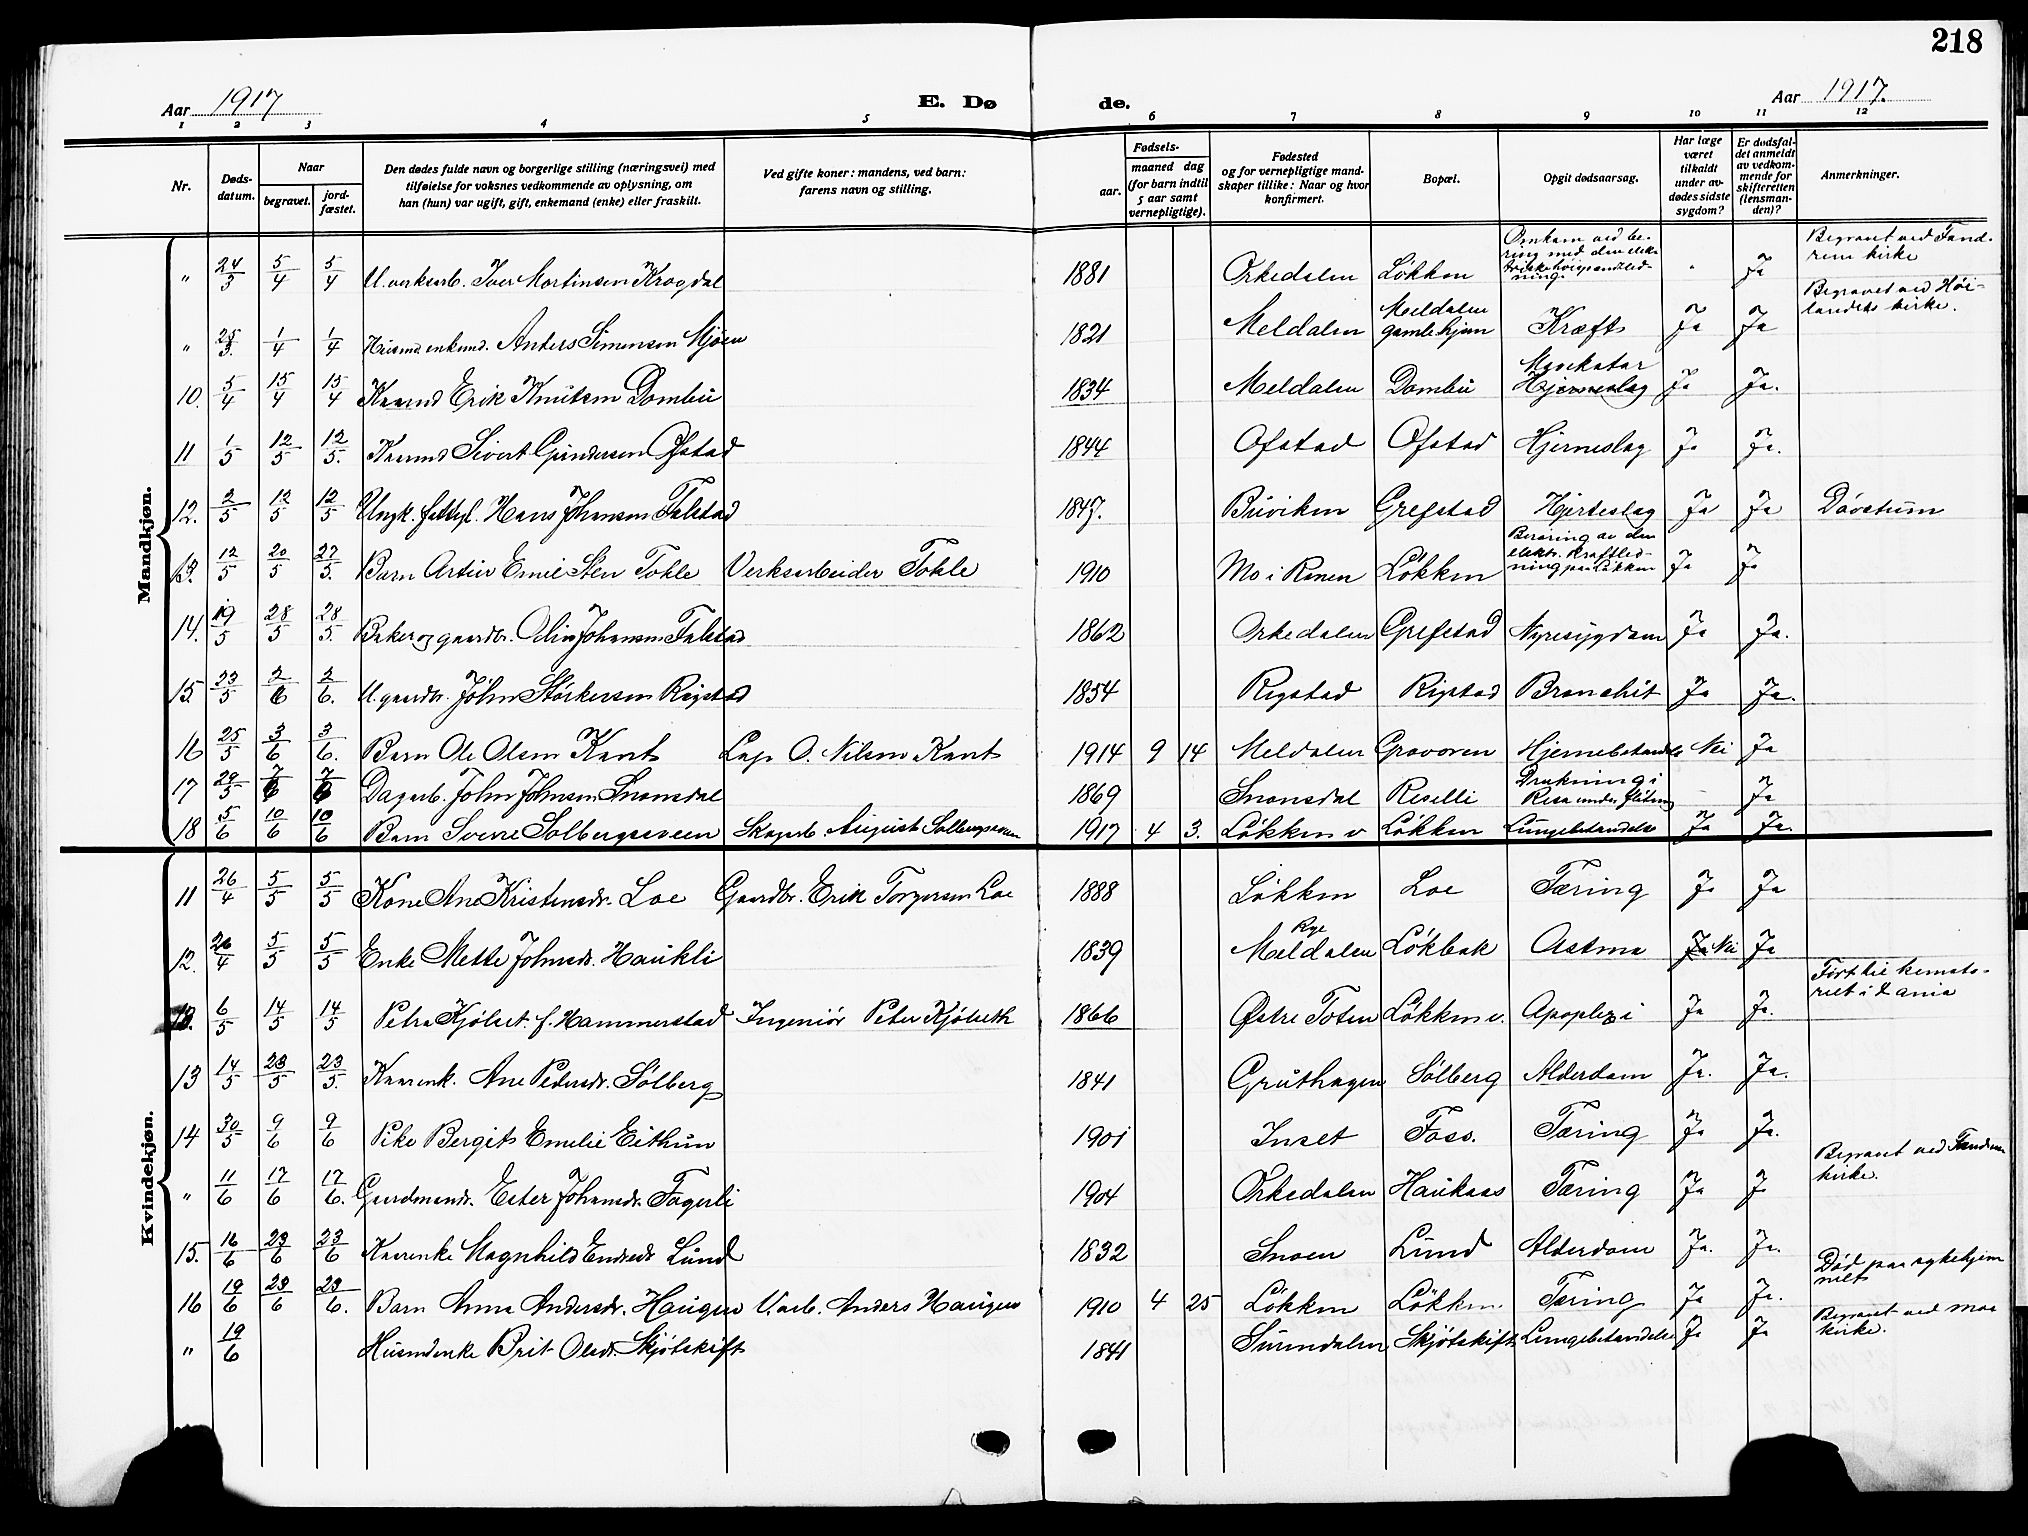 218
Aar 1917 E. Døde. Aar 1917.
1 2 3 4 5 6 7 8 9 10 11 12
Nr. Døds-datum. Naar begravet. jord-fæstet. Den dødes fulde navn og borgerlige stilling (næringsvei) med tilføielse for voksnes vedkommende av oplysning, om han (hun) var ugift, gift, enkemand (enke) eller fraskilt. Ved gifte koner: mandens, ved barn: farens navn og stilling. Fødsels- aar. maaned dag (for barn indtil 5 aar samt vernepligtige). Fødested og for vernepligtige mandskaper tillike: Naar og hvor konfirmert. Bopæl. Opgit dødsaarsag. Har læge været tilkaldt under avdødes sidste sygdom? Er dødsfaldet anmeldt av vedkommende for skifteretten (lensmanden)? Anmerkninger.
Mandkjøn.
" 24/3 5/4 5/4 U. verksarb. Iver Mortinsen Krogdal 1881 Orkedalen Løkken Omkom ved bering med den elektriske ledning. " Ja Begravet ved Tandrem kirke
" 25/3. 1/4 1/4 Husmd enkemd. Anders Simensen Mjøen 1821 Meldalen Meldalen gamlehjem Kræft Ja Ja Begravet ved Høilandets kirke.
10. 5/4 15/4 15/4 Kaarmd Erik Knutsen Dombu 1834 Meldalen Dombu Mavekatar Hjerneslag Ja Ja.
11 1/5 12/5 12/5. Kaarmd Sivert Gundersen Ofstad 1844 Ofstad Ofstad Hjerneslag Ja Ja.
12. 2/5 12/5 12/5 Ungk. fattigl. Hans Johansen Falstad 1847. Buviken Grefstad Hjerteslag Ja Ja Døvstum
13. 12/5 20/5 27/5. Barn Artur Emil Sten Tokle Verksarbeider Tokle 1910 Mo i Ranen Løkken Berøring av den elektr. kraftledning paa Løkken Ja Ja
14. 19/5 28/5 28/5. Baker og gaardbr. Odin Johansen Falstad 1862 Orkedalen Grefstad Nyresygdom Ja Ja.
15. 23/5 2/6 2/6. U. gaardbr. John Størkersen Rigstad 1854 Rigstad Rigstad Bronchit Ja Ja.
16 25/5 3/6 3/6. Barn Ole Olsen Kant Lap O. Nilsen Kant 1914 9 14 Meldalen Gravoren Hjernebetændelse Nei Ja
17 29/5 7/6 7/6 Dagarb. John Johnsen Snonsdal 1869 Snonsdal Reselli Drukning i Resa under fløtning — Ja
18 5/6 10/6 10/6 Barn Sverre Solbergsveen Skogarb August Solbergsveen 1917 4 3. Løkken v Løkken Lungebetændelse Ja Ja.
Kvindekjøn.
11 26/4 5/5 5/5 Kone Ane Kristensdr. Loe Gaardbr. Erik Torgersen Loe 1888 Løkken Loe Tæring Ja Ja
12. 26/4 5/5 5/5 Enke Mette Johnsdr. Haukli 1839 Rye Meldalen Løkbak Astma Ja Nei Ja
6/5 14/5 14/5 Petra Kjølset. f. Hammerstad Ingeniør Peter Kjølseth 1866 Østre Toten Løkken v. Apoplexi Ja Ja. Ført til krematoriet i
13 14/5 23/5 23/5. Kaarenk. Ane Pedersdr. Solberg 1841 Gruthagen Solberg Alderdom Ja. Ja.
14 30/5 9/6 9/6 Pike Bergit Emelie Eithun 1901 Inset Foss. Tæring Ja Ja.
" 11/6 17/6 17/6. Gaardmandsdr. Ester Johansdr. Fagerli 1904 Orkedalen Haukaas Tæring Ja Ja Begravet ved Tandrem kirke.
15. 16/6 23/6 23/6 Kaarenke Magnhild Endredr Lund 1832 Snoen Lund Alderdom Ja. Ja.
16 19/6 23/6 23/6. Barn Anna Andersdr. Haugen V. arb. Anders Haugen 1910 4 25 Løkken Løkken. Tæring Ja Ja. Død paa sykehjemmet
" 19/6 Husmdenke Brit Olsdr. Skjøtskift 1841 Surendalen Skjøtskift Lungebetændelse Ja Ja Begravet ved moe kirke.